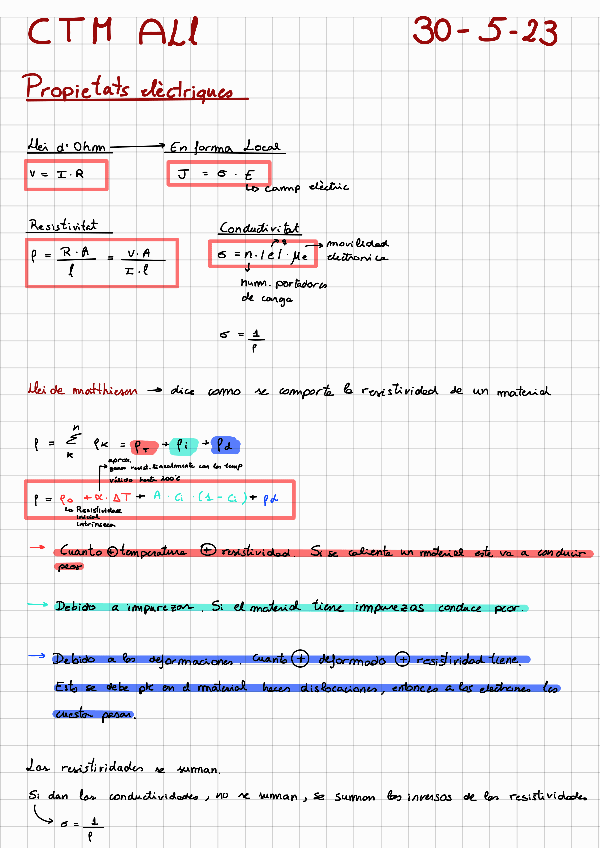 CTM ALL 30-5-23
Propietats elèctriques
Llei d'Ohm → En forma Local
V = I · R J = σ · E
↳ camp elèctric
Resistivitat Conductivitat
ρ = R · A / l = V · A / I · l σ = n · |e| · μe → movilidad electronica
num. portadores
de carga
σ = 1 / ρ
Llei de matthieson → dice como se comporta la resistividad de un material
ρ = Σ ρk = ρT + ρi + ρd
n
k
aprox.
resist. linealmente con la temp
válido hasta 200°C
ρ = ρ0 + α · ΔT + A · Ci · (1 - Ci) + ρd
↳ Resistividad
inicial
intrínseca
→ Cuanto ⊕ temperatura ⊕ resistividad. Si se calienta un material este va a conducir
peor
→ Debido a impurezas. Si el material tiene impurezas conduce peor.
→ Debido a las deformaciones. Cuanto ⊕ deformado ⊕ resistividad tiene.
Esto se debe pk en el material haces dislocaciones, entonces a los electrones les
cuesta pasar.
Las resistividades se suman.
Si dan las conductividades, no se suman, se suman los inversos de las resistividades
↳ σ = 1 / ρ